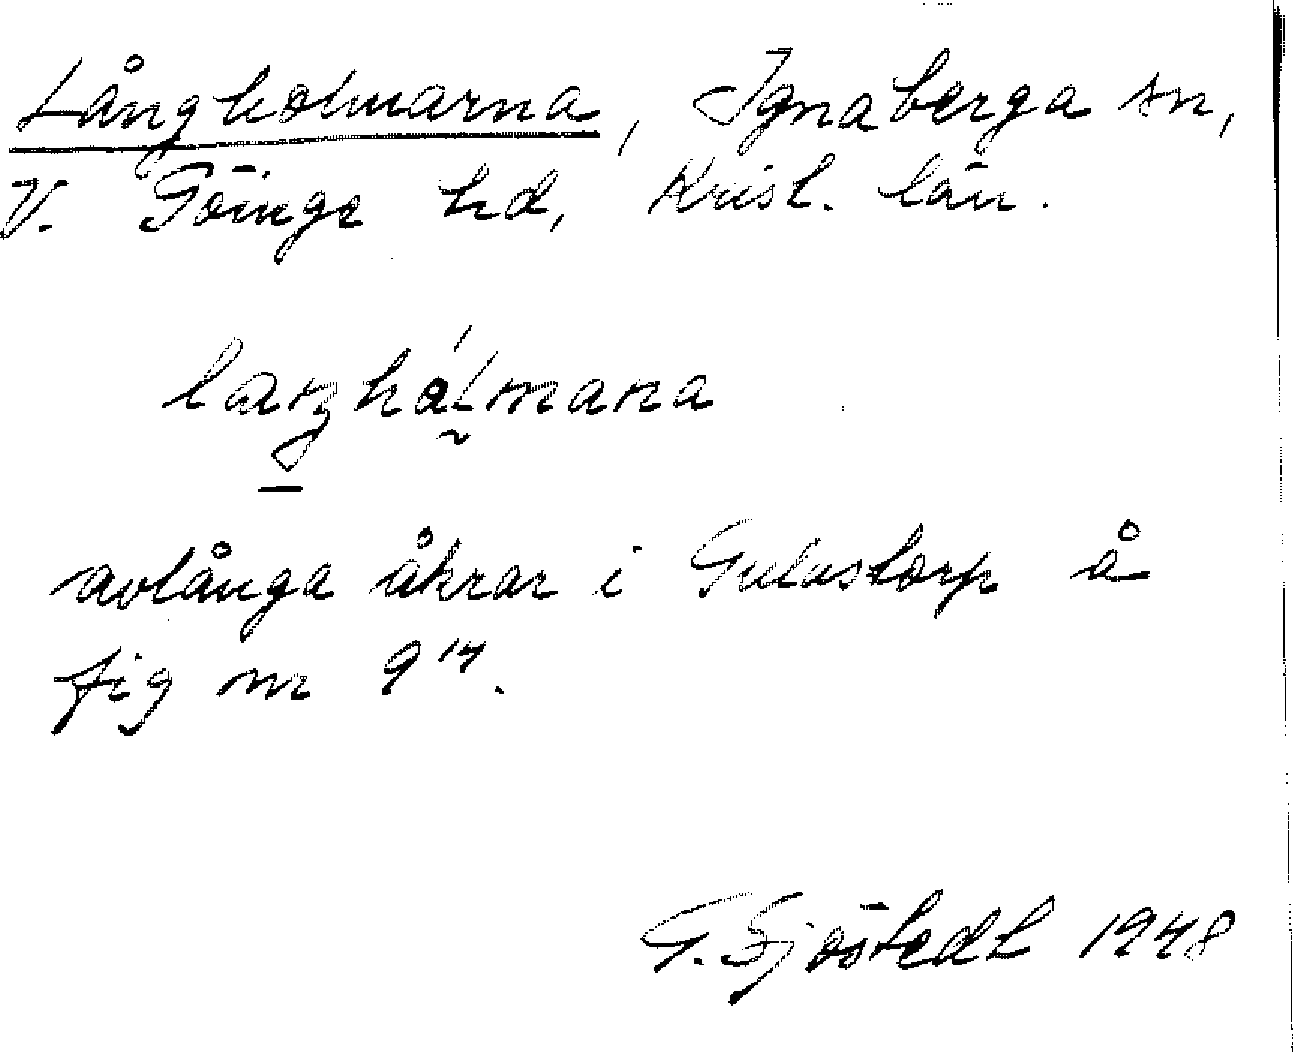 Långholmarna, Ignaberga sn,
V. Göinge hd, Krist. län.
laŋhålmana
avlånga åkrar i Gulastorp å
fig nr 9¹⁴.
G. Sjöstedt 1948